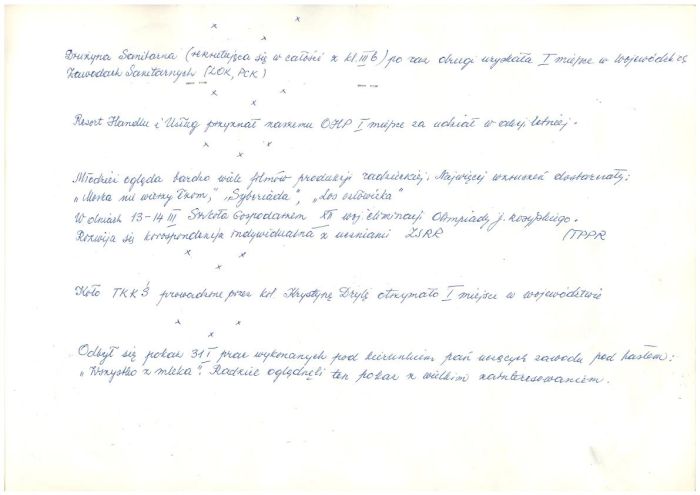 Drużyna Sanitarna (rekrutująca się w całości z kl III b) po raz drugi uzyskała I miejsce w Wojewódzkich
Zawodach Sanitarnych (LOK, PCK)
Resort Handlu i Usług przyznał naszemu OHP I miejsce za udział w akcji letniej.
Młodzież ogląda bardzo wiele filmów produkcji radzieckiej. Najwięcej wzruszeń dostarczały:
„Moskwa nie wierzy łzom," „Syberiada", „Los człowieka"
W dniach 13-14 III Szkoła Gospodarzem XII woj eliminacji Olimpiady j. rosyjskiego.
Rozwija się korespondencja indywidualna z uczniami ZSRR (TPPR
Koło TKKŚ prowadzone przez kol Krystynę Drylę otrzymało I miejsce w województwie
Odbył się pokaz 31 I prac wykonanych pod kierunkiem pań uczących zawodu pod hasłem:
„Wszystko z mleka". Rodzice oglądnęli ten pokaz z wielkim zainteresowaniem.